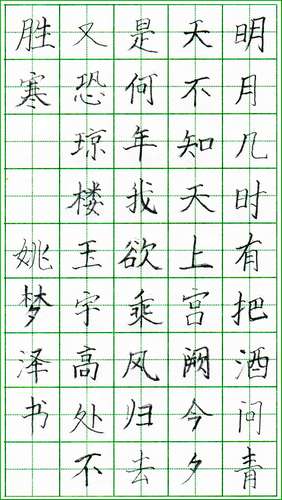 明月几时有把酒问青
天不知天上宫阙今夕
是何年我欲乘风归去
又恐琼楼玉宇高处不
胜寒 姚梦泽书